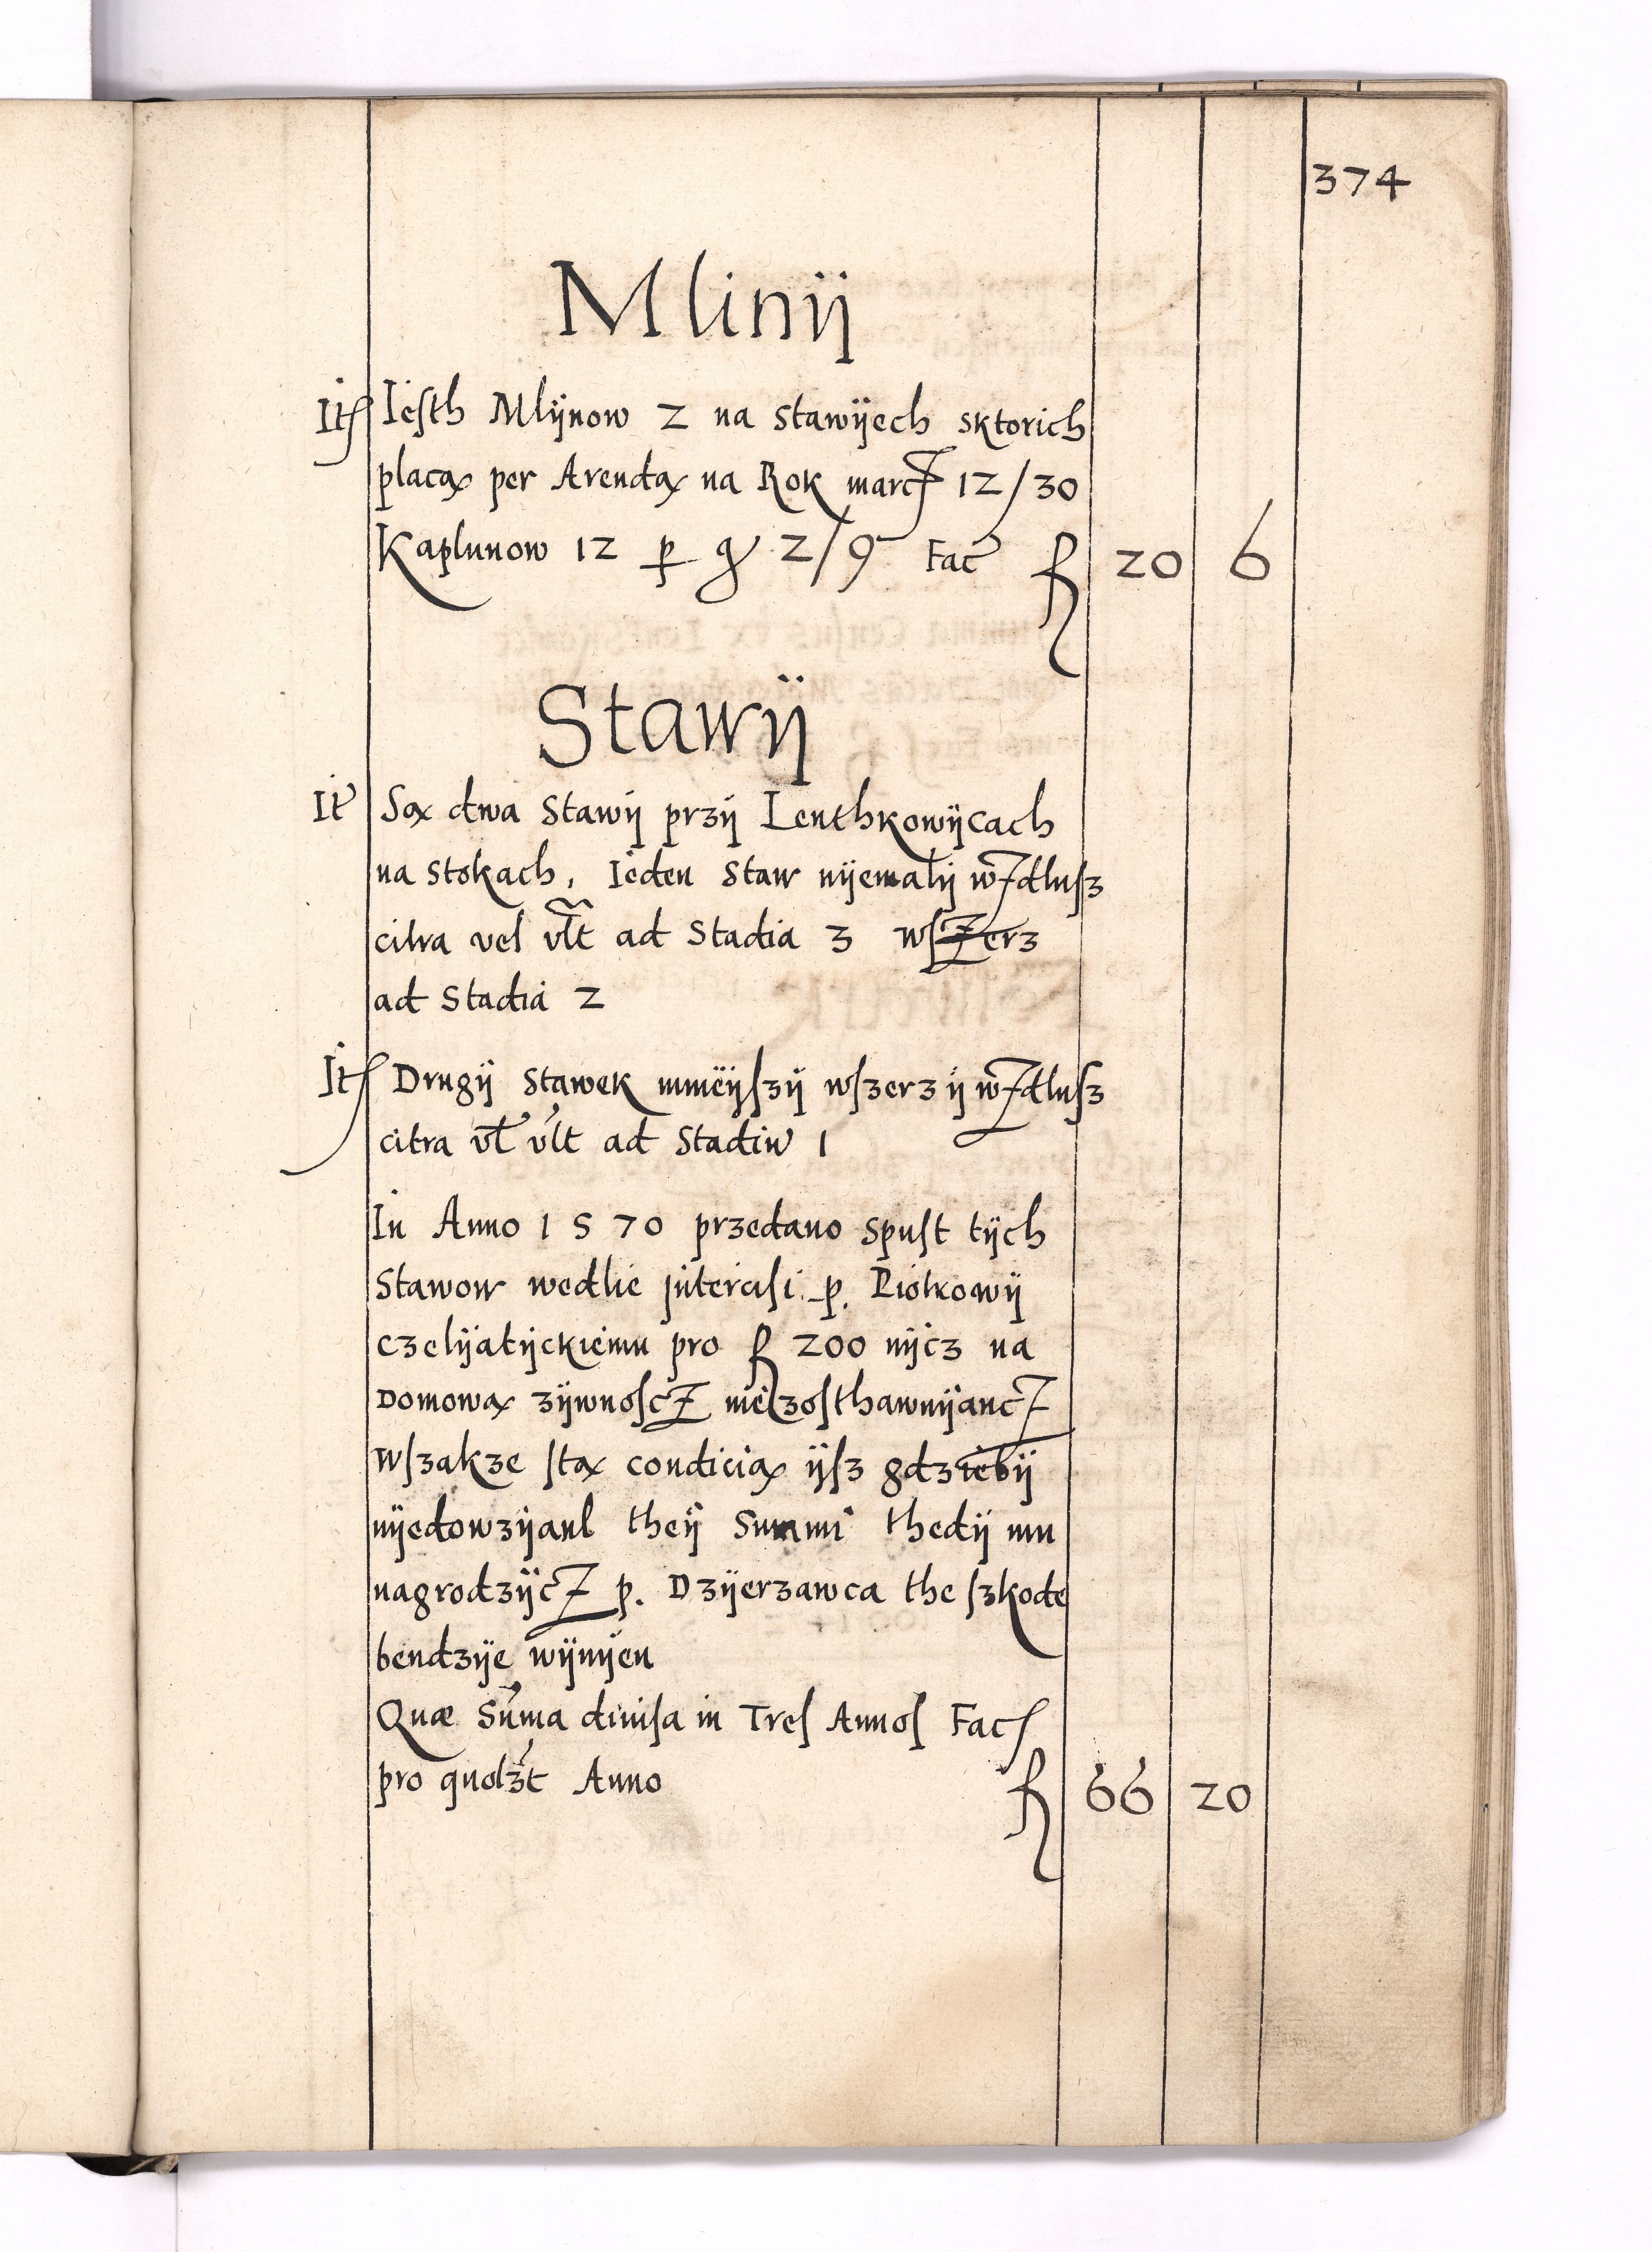 374
Mlinij
It Iesth Mlijnow 2 na stawijech sktorich
placą per Arendą na Rok marcz 12/30
Kaplunow 12 p gr 2/9 Fac fl 20 6
Stawij
It Są dwa Stawij przij Lenthkowijcach
na stokach, Ieden Staw nijemalij wzdlusz
citra vel vlt ad Stadia 3 wszerz
ad Stadia 2
It Drugij Stawek mnieijszij wszerz ij wzdlusz
citra vl vlt ad Stadiū 1
In Anno 1570 przedano spust tijch
Stawow wedlie intercisi p. Piotrowij
Czelijatijckiemu pro fl 200 nijcz na
domową zijwnoscz nie zosthawuijancz
wszakze stą condicią ijsz gdziebij
nijedowzijanl theij Summi thedij mu
nagrodzijcz p. Dzijerzawca the szkode
bendzije wijnijen
Quæ Sūma diuisa in Tres Annos Fac
pro quolzt Anno fl 66 20